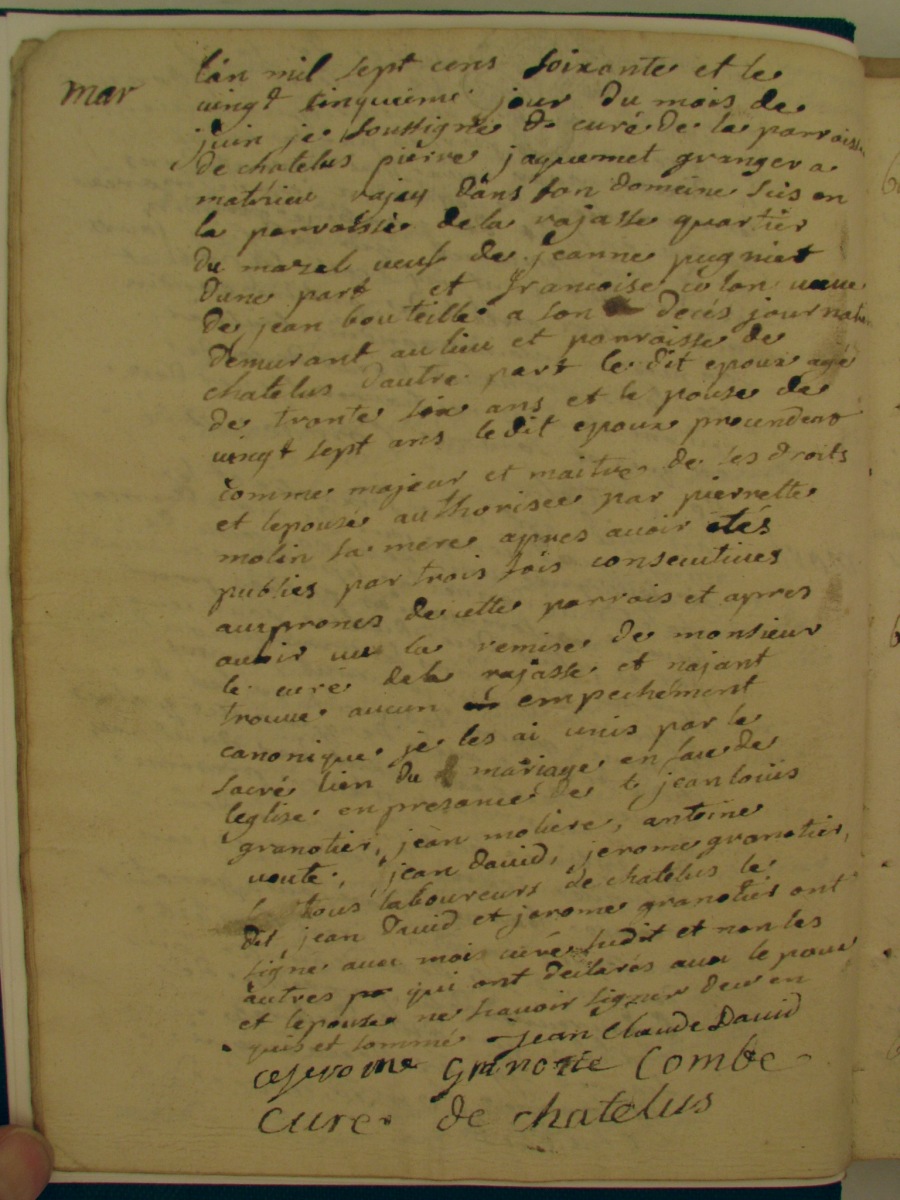 mar
lan mil sept cens soixante et le
vingt cinquieme jour du mois de
juin je soussigné de curé de la parroisse
de chatelus pierre jaquemet granger a
mathieu rajay dans son domeine scis en
la parroissie de la rajasse quartier
du mazel veuf de jeanne pugniet
dune part et francoise colon veuve
de jean bouteille a son decés journalier
demurant au lieu et parroisse de
chatelus dautre part le dit epoux agé
de trante six ans et le pouse de
vingt sept ans ledit epoux procendent
comme majeur et maitre de ses droits
et lepouse authorisee par pierrette
molin sa mere apres avoir etés
publiés par trois fois consecutives
aux prones de cette parrois et apres
avoir vu la remise de monsieur
le curé de la rajasse et najant
trouve aucun empechément
canonique je les ai unis par le
sacré lien du mariage en face de
leglise en presance de jean louis
granotier, jean moliere, antoine
voute, jean david, jerome granotier,
tous laboureurs de chatelus le
dit jean david et jerome granotier ont
signé avec mois curé sudit et non les
autres qui ont declarés avec le poux
et lepouse ne scavoir signer deu en
quis et sommé jean claude David
jerome granotie Combe
Cure de chatelus